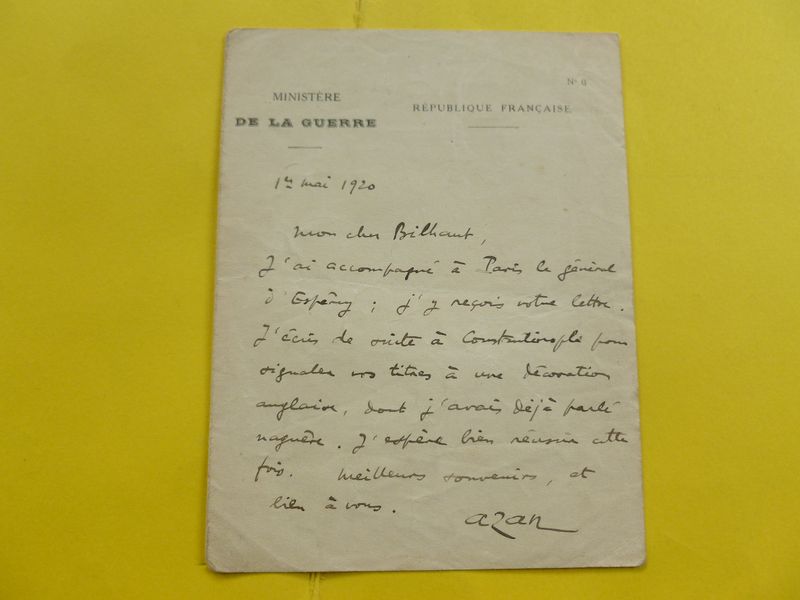 N° 6
MINISTÈRE
DE LA GUERRE
RÉPUBLIQUE FRANÇAISE
1er mai 1920
Mon cher Bilhaut,
J'ai accompagné à Paris le général
d'Espérey ; j'y reçois votre lettre.
J'écris de suite à Constantinople pour
signaler vos titres à une décoration
anglaise, dont j'avais déjà parlé
naguère. J'espère bien réussir cette
fois. Meilleurs souvenirs, et
bien à vous.
Azan